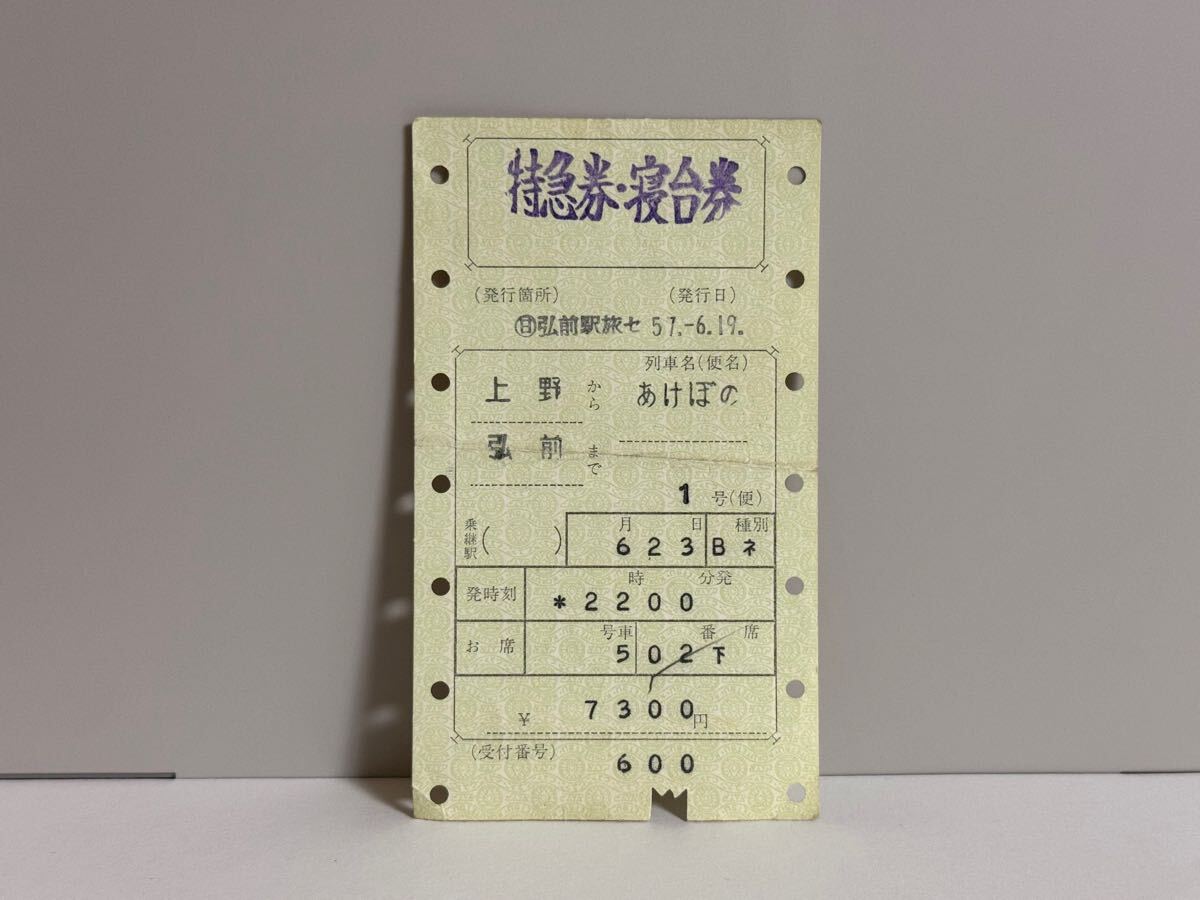 特急券・寝台券
(発行箇所) (発行日)
㊐弘前駅旅セ 57.-6.19.
列車名(便名)
上野から あけぼの
弘前まで
1号(便)
乗継駅( ) 月 日 種別
623 Bネ
時 分発
発時刻 *2200
号車 番 席
お席 5 02下
¥ 7300円
(受付番号) 600